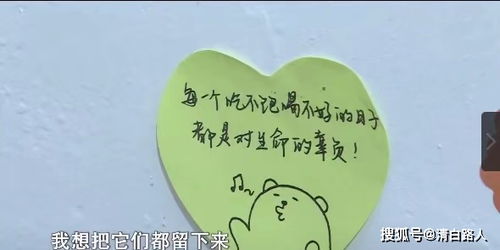 每一个吃不饱喝不好的日子
都是对生命的辜负！
我想把它们都留下来
搜狐号@清白路人